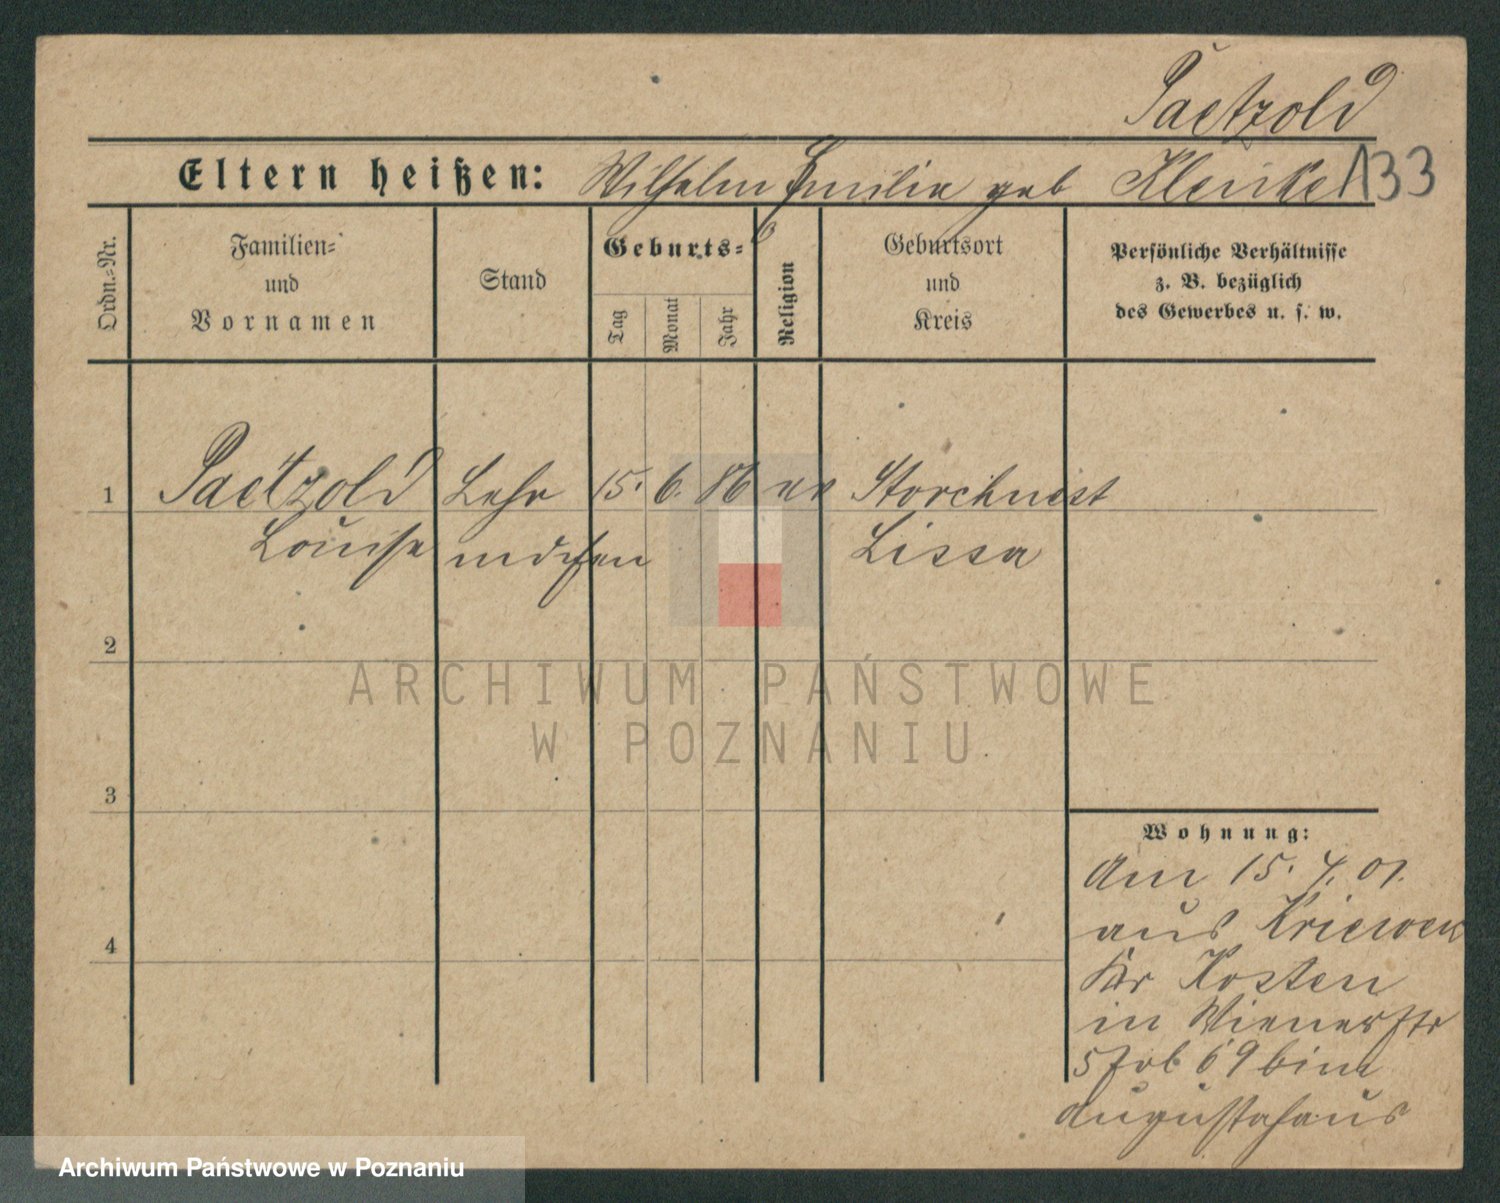 Paetzold
Eltern heißen: Wilhelm Emilie geb Klenke 133
Ordn.-Nr.
Familien- und Vornamen
Stand
Geburts-
Tag Monat Jahr
Religion
Geburtsort und Kreis
Persönliche Verhältnisse
z. B. bezüglich
des Gewerbes u. s. w.
1 Paetzold Lehr 15. 6. 86 ev Storchnest
Louise mdchen Lissa
2
ARCHIWUM PAŃSTWOWE
W POZNANIU
3
Wohnung:
Am 15. 4. 01.
aus Kriewen
4
Kr Kosten
in Wienerstr
5 69 beim
Augustahaus
Archiwum Państwowe w Poznaniu